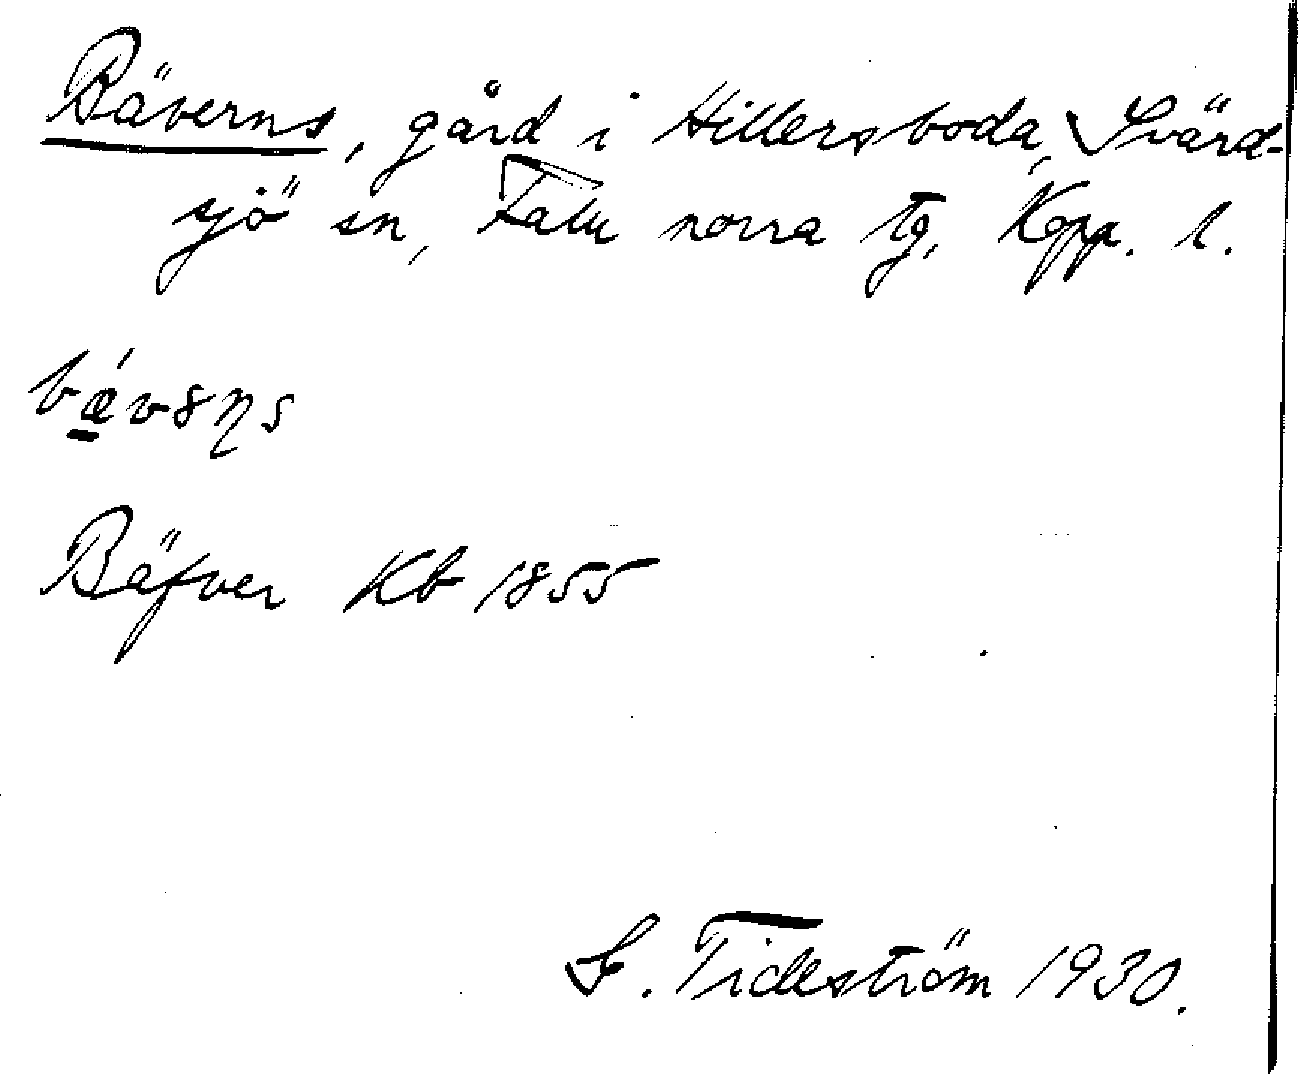 Bäverns, gård i Hillersboda, Svärd-
sjö sn, Falu norra tg, Kopp. l.
Bäfver Kb 1855
S. Tideström 1930.